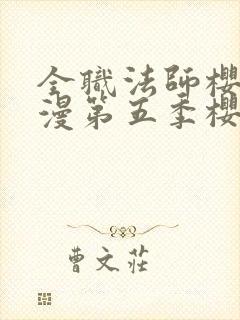 全職法師櫻
漫第五季櫻
曹文莊